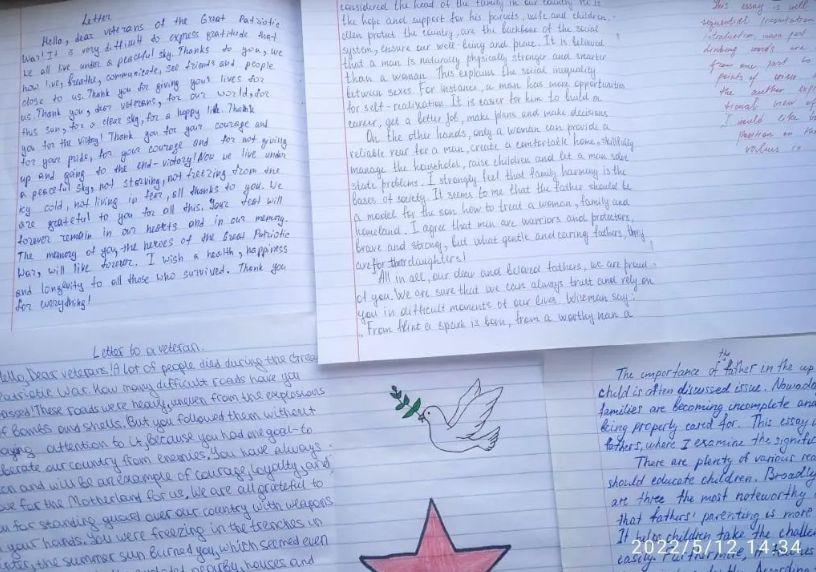 Letter
Hello, dear veterans of the Great Patriotic
War! It is very difficult to express gratitude that
we all live under a peaceful sky. Thanks to you, we
now live, breathe, communicate, see friends and people
close to us. Thank you for giving your lives for
us. Thank you, dear veterans, for our world, for
this sun, for a clear sky, for a happy life. Thank
you for the victory! Thank you for your courage and
for your pride, for your courage and for not giving
up and going to the end - victory! Now we live under
a peaceful sky, not starving, not freezing from the
icy cold, not living in fear, all thanks to you. We
are grateful to you for all this. Your feat will
forever remain in our hearts and in our memory.
The memory of you, the heroes of the Great Patriotic
War, will live forever. I wish a health, happiness
and longevity to all those who survived. Thank you
for everything!
considered the head of the family in our country. He is
the hope and support for his parents, wife and children.
Men protect the country, are the backbone of the social
system, ensure our well-being and peace. It is believed
that a man is naturally physically stronger and smarter
than a woman. This explains the social inequality
between sexes. For instance, a man has more opportunities
for self-realization. It is easier for him to build a
career, get a better job, make plans and make decisions
On the other hands, only a woman can provide a
reliable rear for a man, create a comfortable home, skillfully
manage the household, raise children and let a man solve
state problems. I strongly feel that family harmony is the
bases of society. It seems to me that the father should be
a model for the son how to treat a woman, family and
homeland. I agree that men are warriors and protectors,
brave and strong, but what gentle and caring fathers, they
are for their daughters!
All in all, our dear and beloved fathers, we are proud
of you. We are sure that we can always trust and rely on
you in difficult moments of our lives. Wiseman say:
"From flint a spark is born, from a worthy man a
This essay is well
sequential
introduction, main part
linking words are
from one part to
points of
the author
tional view of
I would like
position on
values is
Letter to a veteran.
Hello, Dear veterans! A lot of people died during the Great
Patriotic War. How many difficult roads have you
passed! These roads were heavily uneven from the explosions
of bombs and shells. But you followed them without
paying attention to it, because you had one goal - to
liberate our country from enemies. You have always
been and will be an example of courage, loyalty, and
love for the Motherland for us. We are all grateful to
you for standing guard over our country with weapons
in your hands. You were freezing in the trenches in
winter, the summer sun burned you, which seemed even
nearby, houses and
The importance of the father in the up
child is often discussed issue. Nowad
families are becoming incomplete and
being properly cared for. This essay
fathers, where I examine the signific
There are plenty of various rea
should educate children. Broadly
are three the most noteworthy
that fathers' parenting is more
It helps children take the challe
easily. Furthermore,
According
2022/5/12 14:34